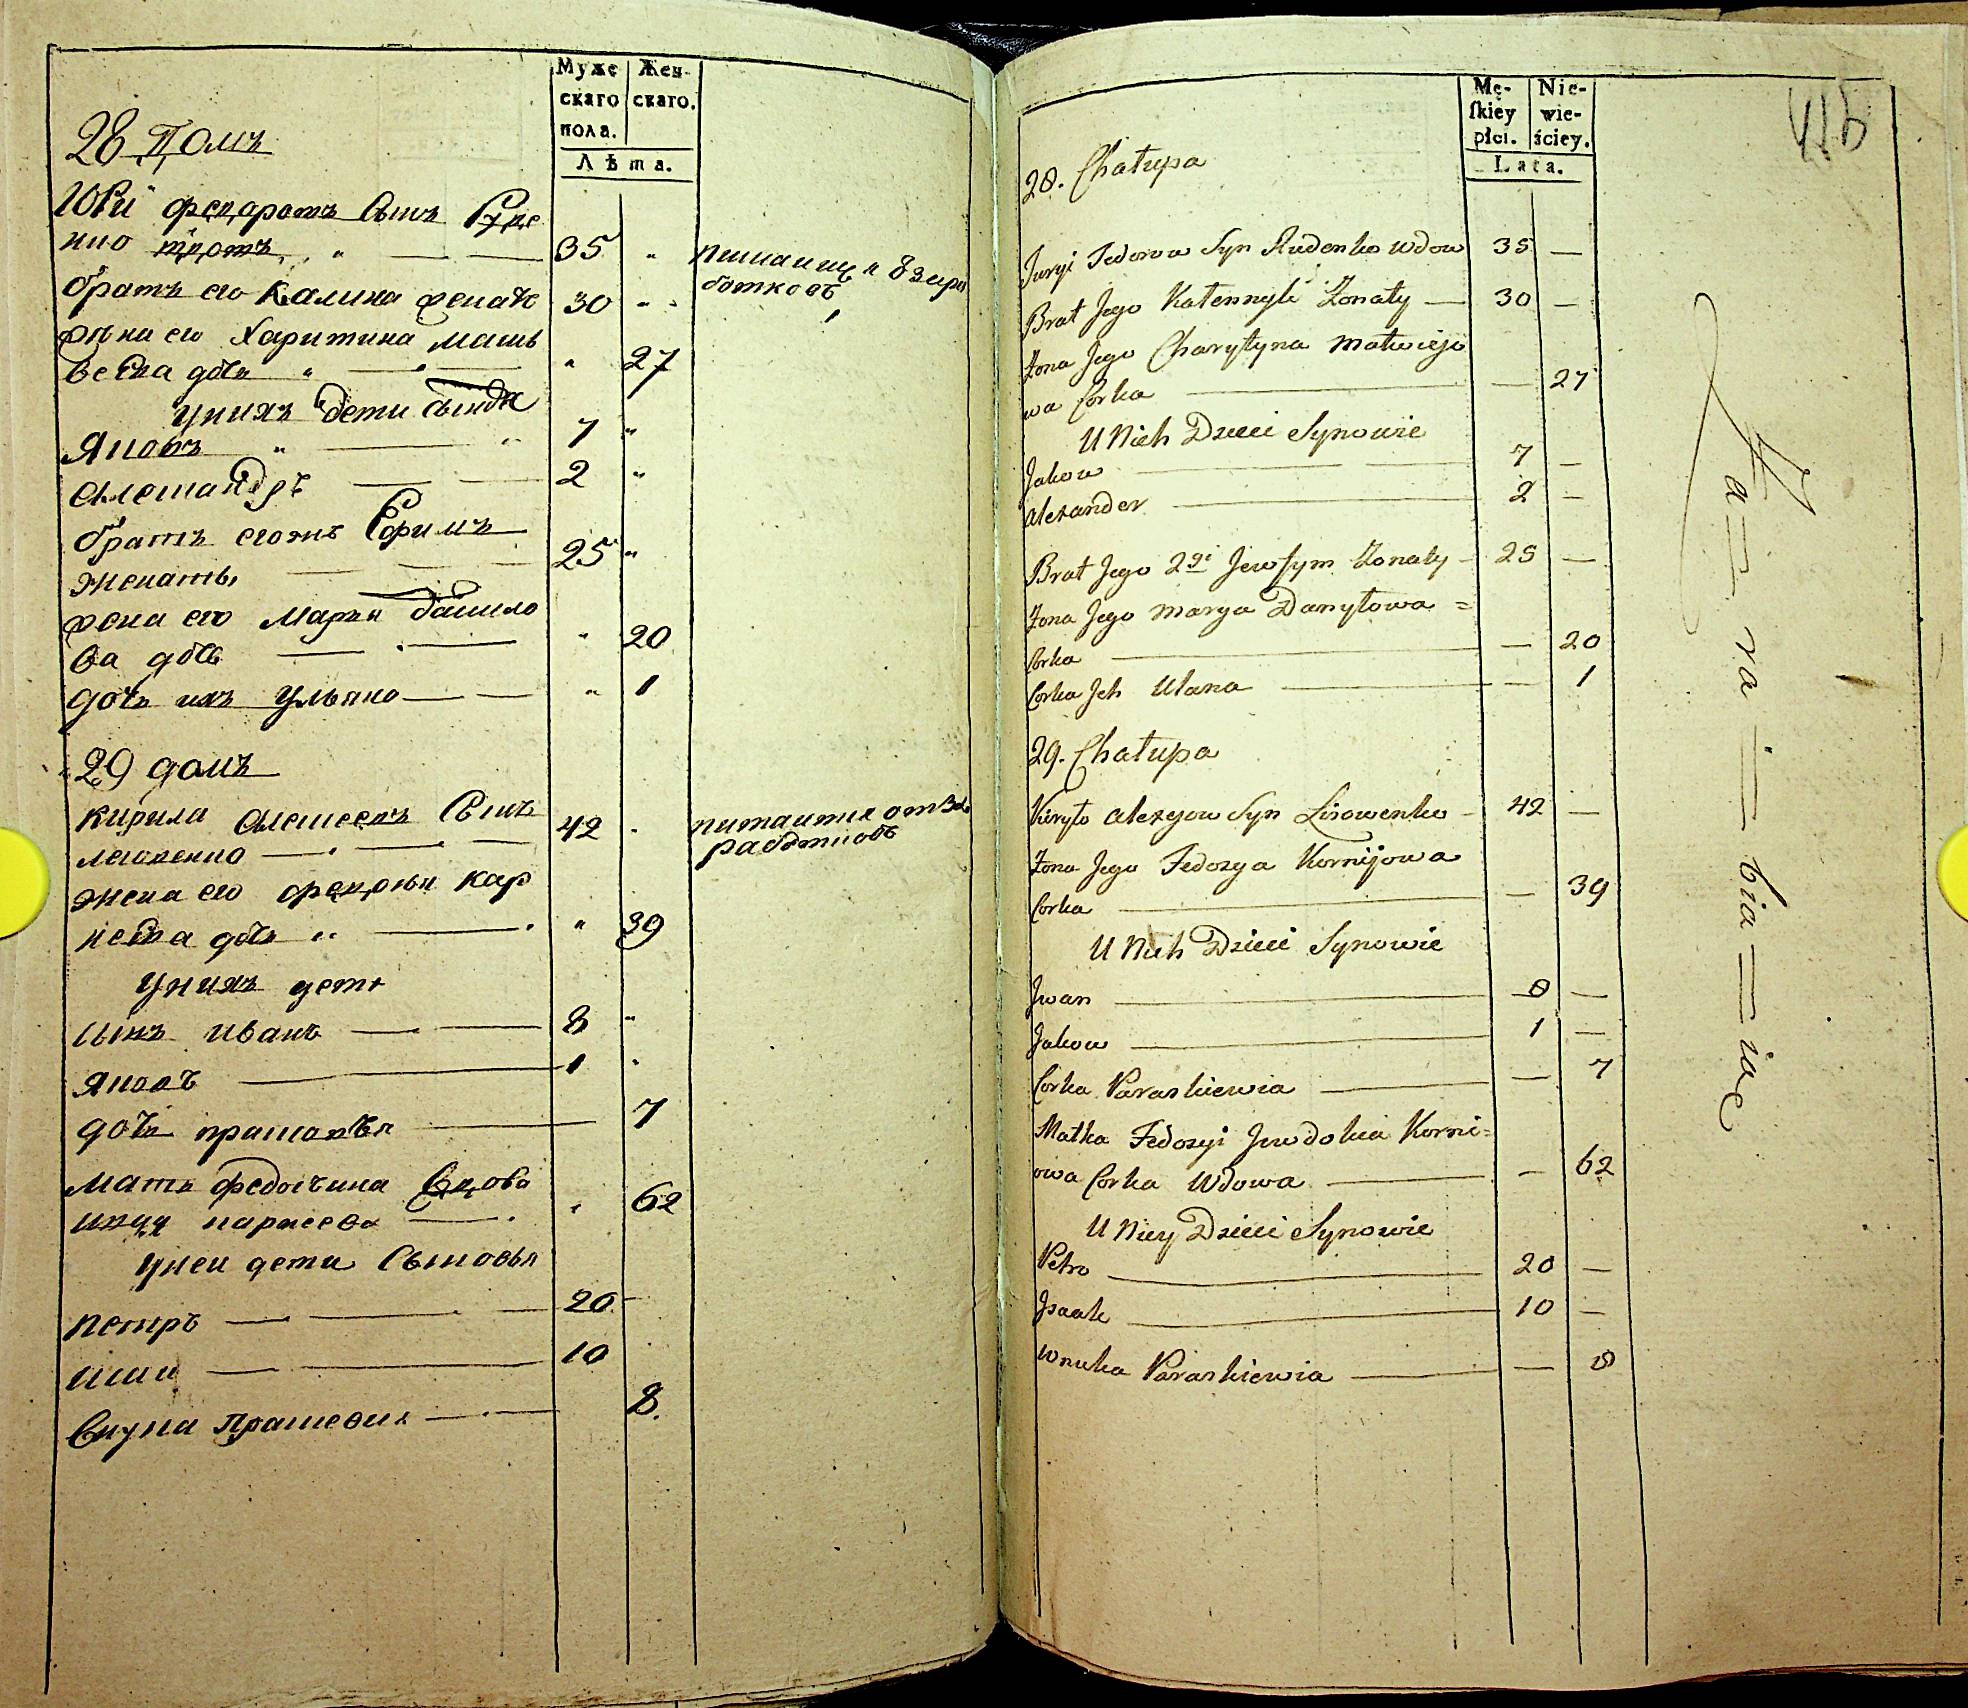 Муже
скаго
пола.
Жен-
скаго.
Лѣта.
28 Домъ
Юрй федоровъ Сынъ Руде
нко 35
братъ его Калина женатъ 30
жена его Харитина матв
вева дочь 27
у нихъ дети сынове
Яковъ 7
Александръ 2
братъ его жъ Ефимъ
женатъ 25
жена его Марья данило
ва дочь 20
дочь ихъ Ульяна 1
29 домъ
Кирила Алексеевъ Сынъ 42
питаитца от за
работковъ
жена его федосья Кор
неева дочь 39
у нихъ дети
сынъ Иванъ 8
Яковъ 1
дочь прасковья 7
мать федосьина вдова
62
у неи дети Сыновья
петръ 20
10
Внука Прасковия 8.
Mę-
skiey
płci.
Nie-
wie-
ściey.
Lata.
28. Chałupa
Juryi Fedorow Syn Rudenko wdow 35 —
Brat Jego Kalennyk Żonaty — 30 —
Żona Jego Charytyna Matwiejo
wa Corka — 27
U Nich Dzieci Synowie
Jakow 7 —
Alexander 2 —
Brat Jego 2gi Jewfym Żonaty 25 —
Żona Jego Marya Danyłowa =
Corka — 20
Corka Jch Ulana — 1
29. Chałupa
Kiryło Alexyow Syn Lisowenko 42 —
Żona Jego Fedosya Kornijowa
Corka — 39
U Nich Dzieci Synowie
Jwan 8 —
Jakow 1 —
Corka Paraskiewia — 7
Matka Fedosyi Jewdokia Korni=
owa Corka Wdowa — 62
U Niey Dzieci Synowie
Petro 20 —
Jsaak 10 —
Wnuka Paraskiewia — 8